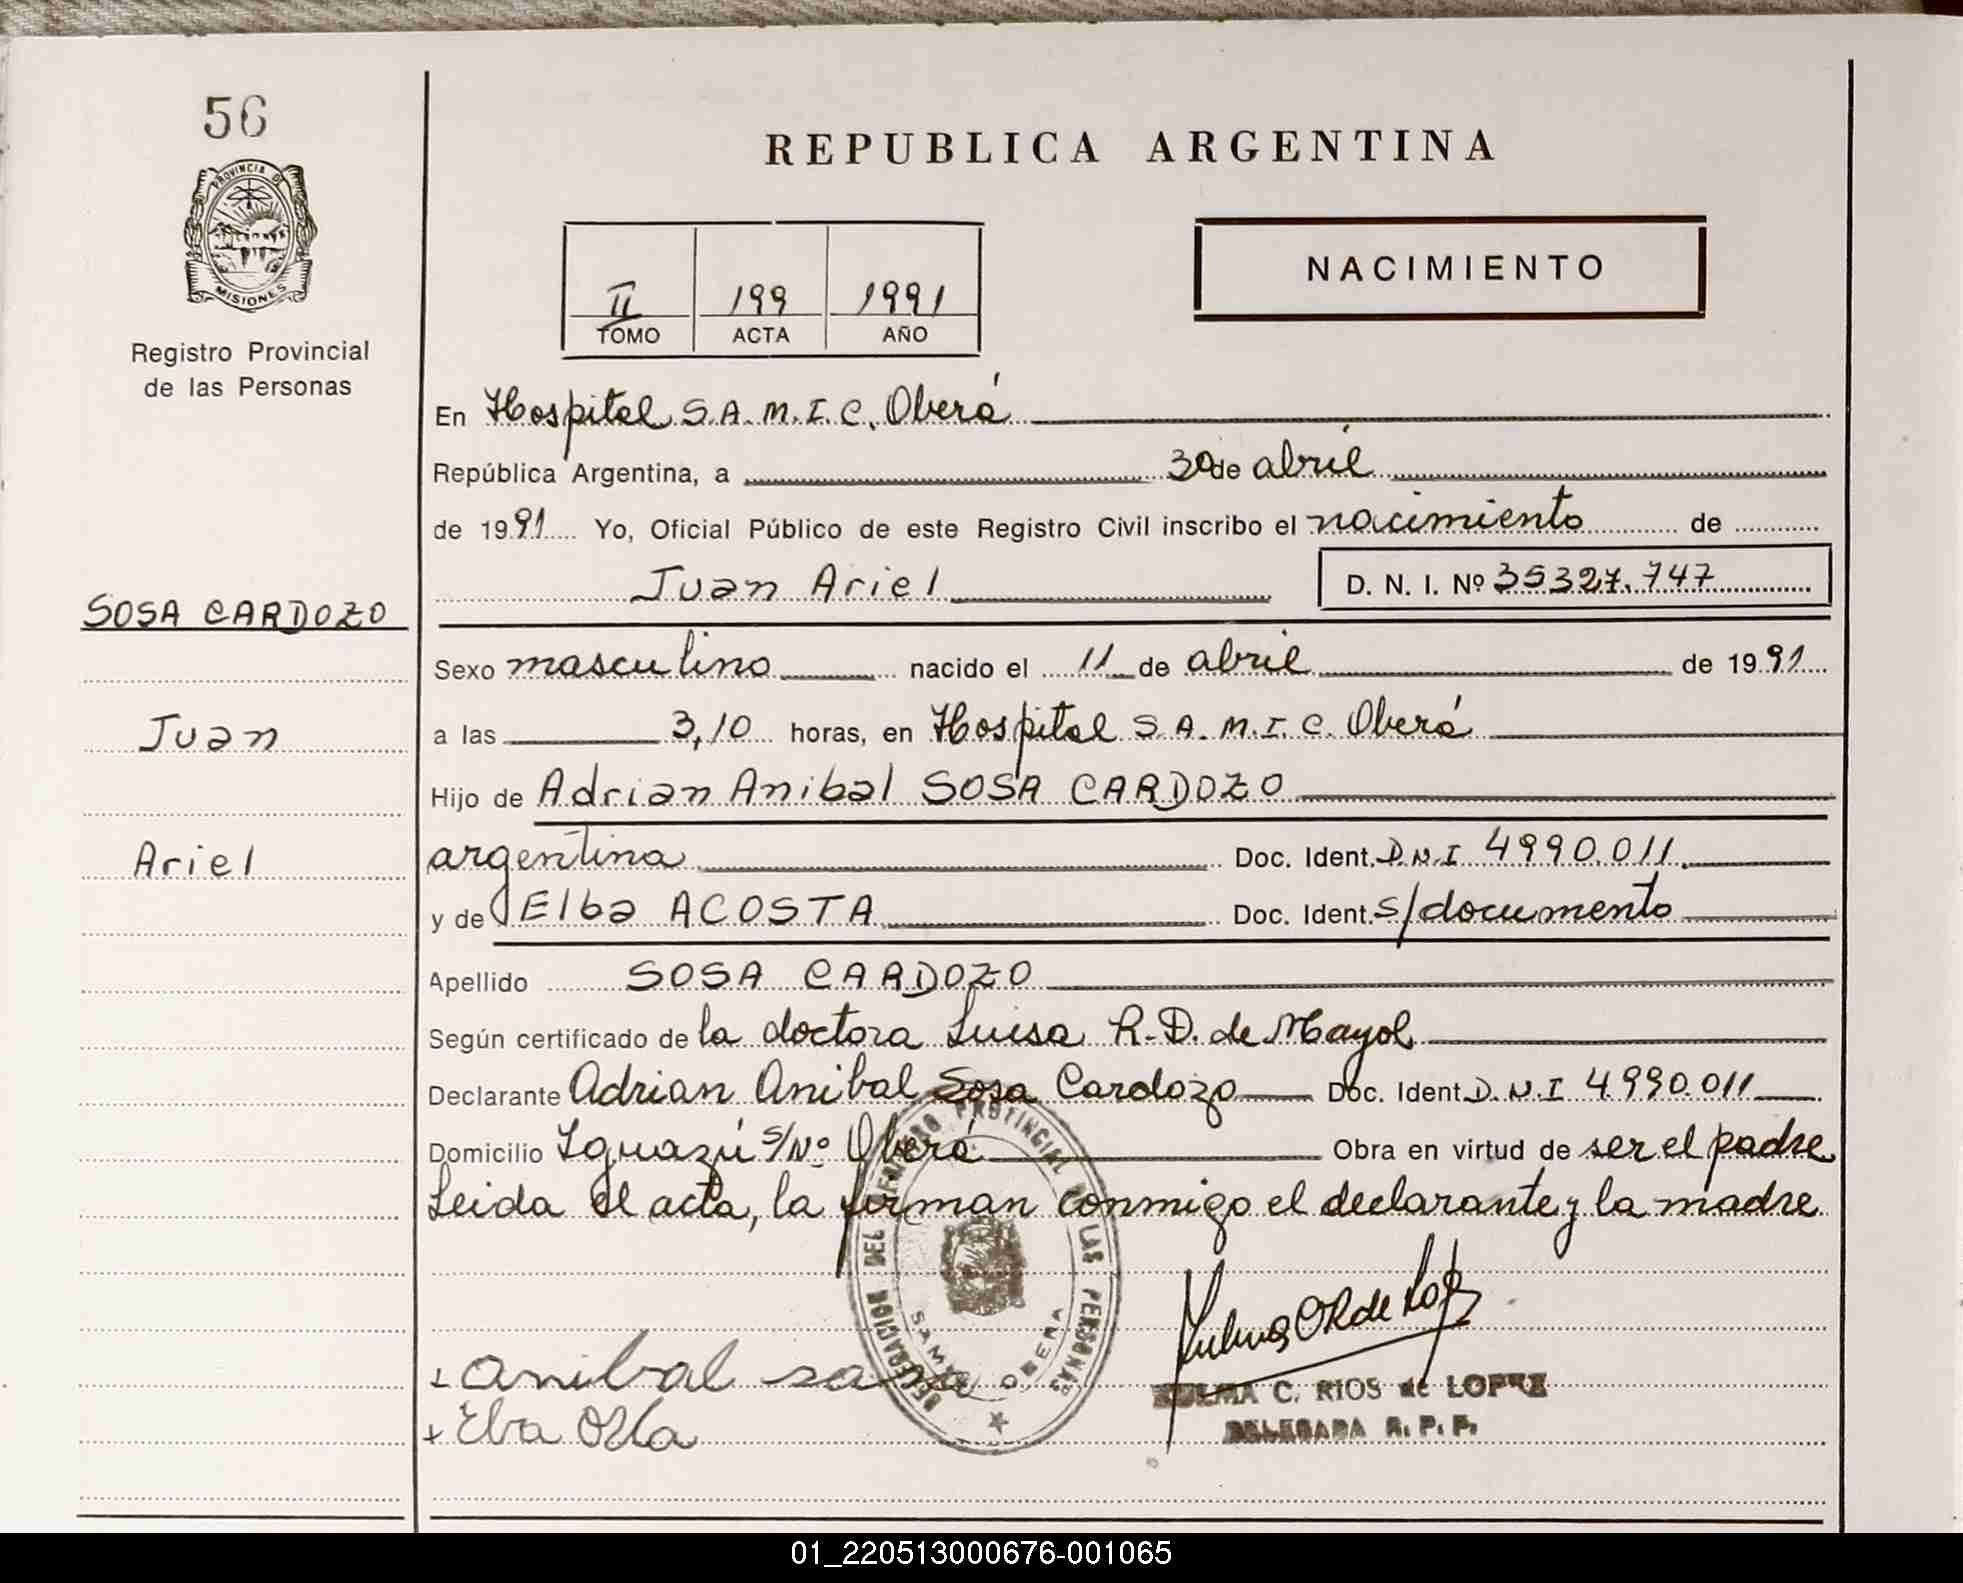 56
PROVINCIA DE
MISIONES
Registro Provincial
de las Personas
REPUBLICA ARGENTINA
II 199 1991
TOMO ACTA AÑO
NACIMIENTO
En Hospital S.A.M.I.C. Oberá
República Argentina, a 30 de abril
de 1991 Yo, Oficial Público de este Registro Civil inscribo el nacimiento de
Juan Ariel D. N. I. Nº 35327.747
SOSA CARDOZO
Sexo masculino nacido el 11 de abril de 1991
Juan
a las 3,10 horas, en Hospital S.A.M.I.C. Oberá
Hijo de Adrian Anibal SOSA CARDOZO
Ariel
argentina Doc. Ident. D.N.I 4990.011.
y de Elba ACOSTA Doc. Ident. s/documento
Apellido SOSA CARDOZO
Según certificado de la doctora Luisa R.D. de Mayol
Declarante Adrian Anibal Sosa Cardozo Doc. Ident. D.N.I 4.990.011
Domicilio Iguazú s/Nº Oberá Obra en virtud de ser el padre
Leida el acta, la firman conmigo el declarante y la madre
DELEGACION DEL REGISTRO PROVINCIAL DE LAS PERSONAS
OBERA
Zulma C R de Lopez
+ anibal sosa
ZULMA C. RIOS de LOPEZ
+ Elba
DELEGADA R. P. P.
01_220513000676-001065